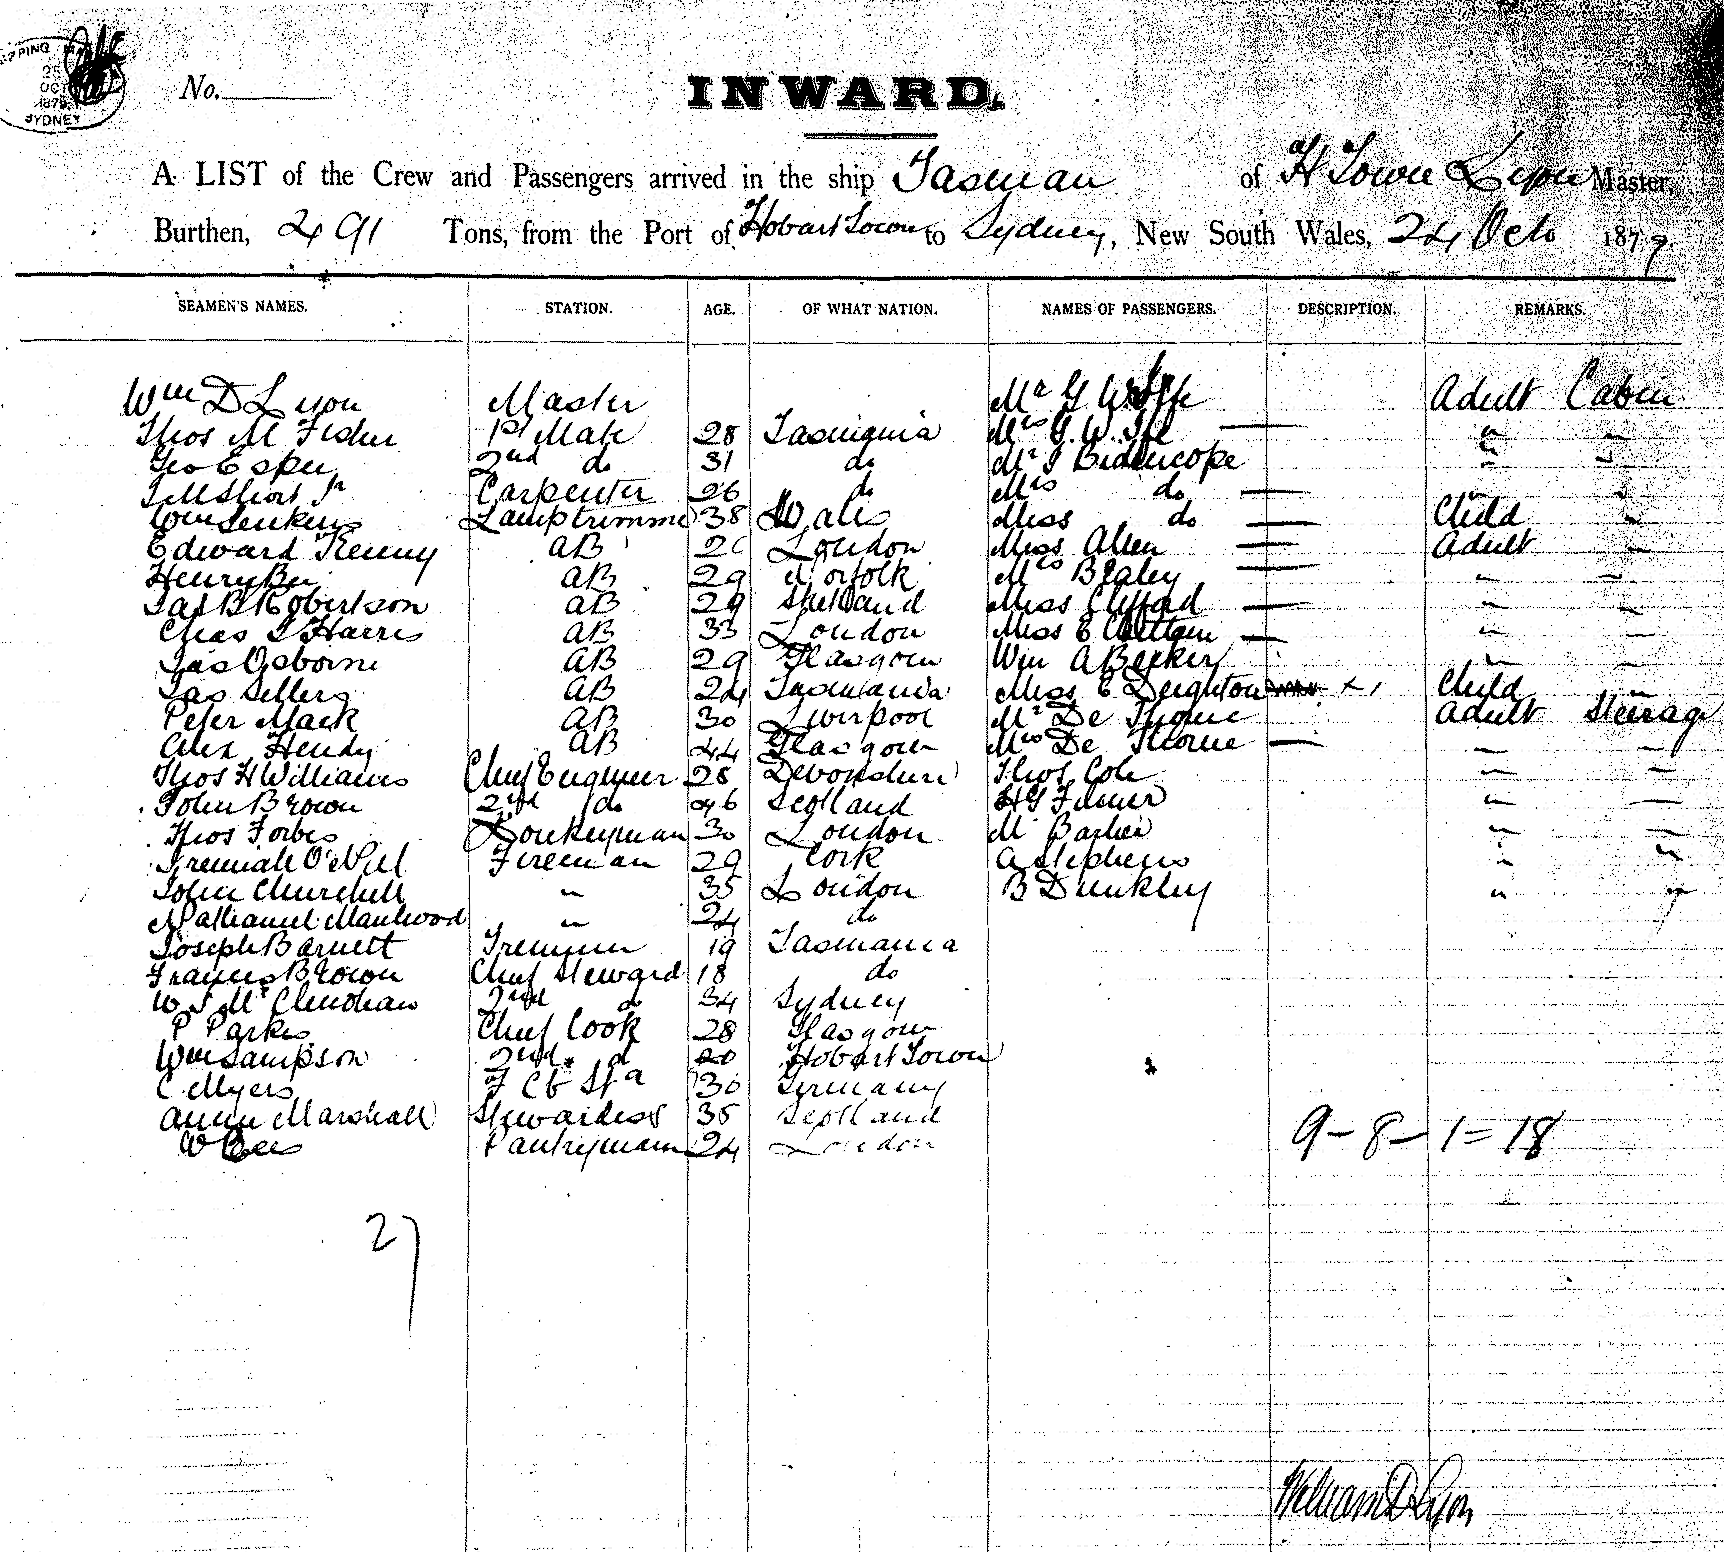 SHIPPING
OCT
SYDNEY
No.
INWARD.
A LIST of the Crew and Passengers arrived in the ship Tasman of H Town Lyon Master,
Burthen, 491 Tons, from the Port of Hobart Town to Sydney, New South Wales, 24 Octo 1879
SEAMEN'S NAMES. STATION. AGE. OF WHAT NATION. NAMES OF PASSENGERS. DESCRIPTION. REMARKS.
Wm D Lyon Master Mr G Wolfe Adult Cabin
Thos M Fisher 1st Mate 28 Tasmania Mrs G. W. — " "
Geo 2nd do 31 do Mr Bidencope " "
Carpenter 26 do Mrs do — " "
Wm Jenkins Lamptrimmer 38 Wales Miss do — Child "
Edward Kenny AB London Miss Allen — Adult "
Henry AB 29 Norfolk Mrs — " "
Jas B Robertson AB 29 Shetland Miss Clifford — " "
Chas Harris AB 33 London Miss E — " "
Jas Osborne AB 29 Glasgow Wm A Becker " "
Jas Sellers AB 24 Tasmania Miss E Deighton Child "
Peter Mack AB 30 Liverpool Mr De Thorne Adult Steerage
Alex Hendy AB 44 Glasgow Mrs De Thorne — " "
Thos H Williams Chief Engineer 28 Devonshire Thos Cole " "
John Brown 2nd do 46 Scotland " "
Thos Forbes Donkeyman 30 London M Barber " "
Jremiah O'Neil Fireman 29 Cork A Stephens " "
John Churchill " 35 London B Dunkley " "
Nathaniel " 24 do
Joseph Barnett Tremmer 19 Tasmania
Francis Brown Chief Steward 18 do
2nd do 34 Sydney
P Parkes Chief Cook 28 Glasgow
Wm Sampson 2nd d 20 Hobart Town
C Myers 30 Germany
Annie Marshall Stewardess 35 Scotland
W Pantryman 24 London
9 – 8 – 1 = 18
27
William D Lyon